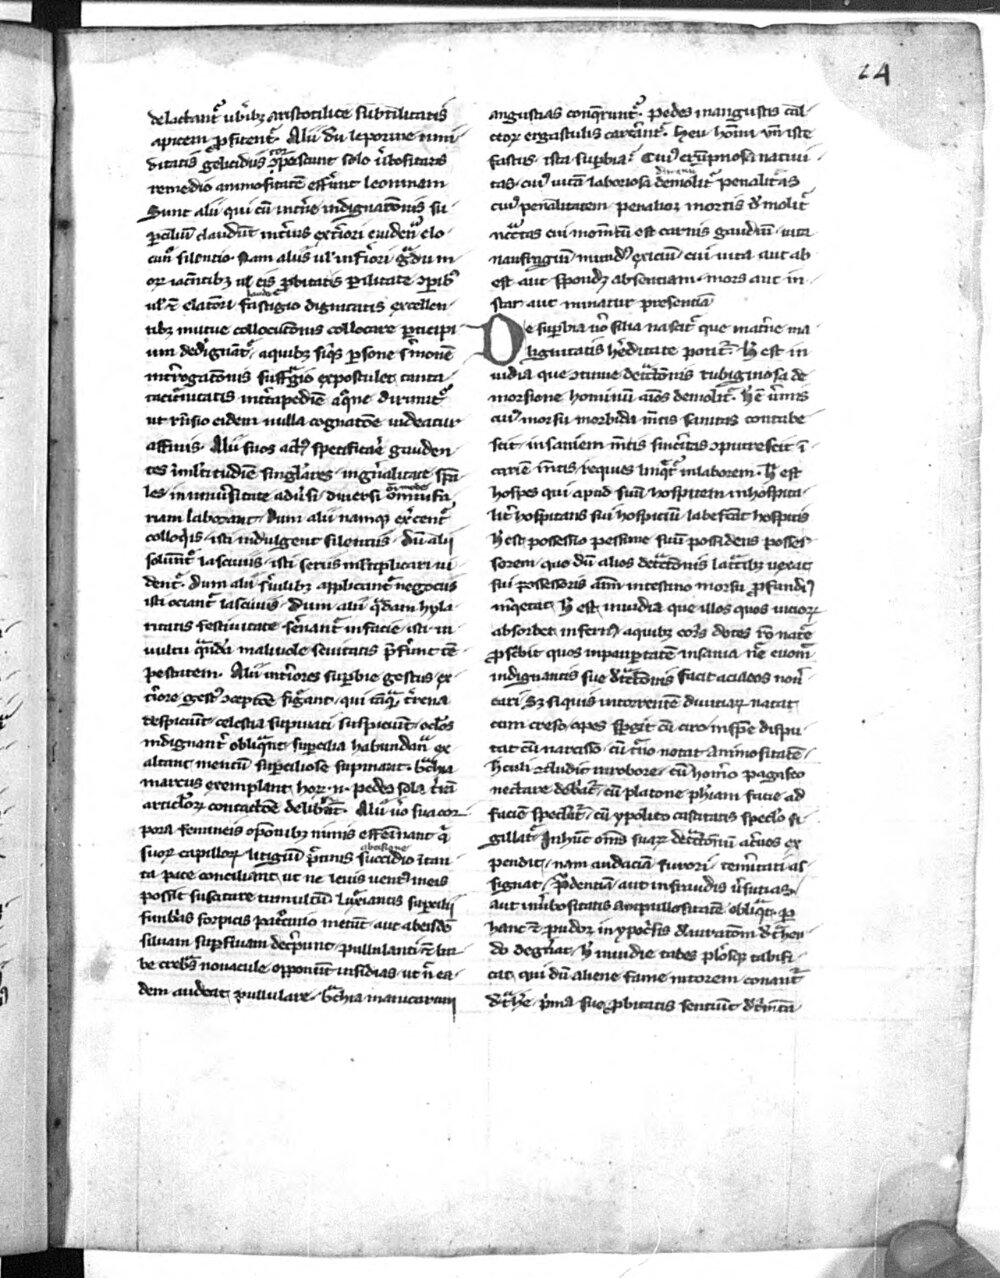 24
delactant᷑ ub̾ib; aristotilice subtilitatis
apicem ꝓfitent᷑. Alii dū leporine timi
ditatis gelicidiis ꝯpescunt solo ub̾ositatis
cor
remedio animositatē effer̄unt leoninam
Sunt alii qui cū int̾ne indignatōnis su
ꝑciliū claudūt int̾ius ext̾iori euidenti elo
cūt silentio. Nam aliis ul̾ in inf̾iori g̾du in
or iacētib; ul̾ eis ꝓbitatis ꝑilitate ꝯparib;
ul̾ ī elatiori fastigio dignitatis excellen
tib; mutue collocutōnis collocare ꝑticipi
um dedignāt᷑, a quib; siq̾s ꝑsone s̾monē
int̾rogatōnis suff̾gio expostulet, tanta
taciturnitatis int̾capedīe a q̾one dirimit᷑
ut rn̄sio eidem nulla cognatōe uideatur
affinis. Alii suos act; specificare gauden
tes ī multitudīe singl̾ares in gn̾alitate spāles
les in uniu̾sitate adu̾si diuersi omnifa
riam laborant. Dum alii namq; ex̾cent᷑
colloq̾is. isti indulgent silentiis. dū alii
soluūt᷑ lasciuiis. isti seriis ml̾tiplicari ui
dent᷑. dum alii s̾iulib; applicant᷑ negociis
isti ociant᷑ lasciuiis. Dum alii q̾dam hyla
ritatis festiuitate s̾enant᷑ in facie isti in
uultu q̾ndā maliuole seuitatis p̾ferūt tē
pestatem. Alii int̾iores suꝑbie gestus ex
t̾iore gest; ꝯceptōe figurant, qui tāq̾ t̾rena
despiciūt. celestia supinati suspiciunt. oclos
indignant̾ obliquāt. suꝑcilia habundant̾ ex
altant mentū suꝑciliose supinant. b̾chia
in arcus exemplant, hor .n. pedes sola t̾rā
articlor̄ contactōe delibāt. Alii u̾o sua cor
pora femineis ꝯpōnib; nimis effeminant q̾
abcisione
suor capillor̄ litigiū pectinis succidio ī tan
ta pace conciliant, ut ne leuis uent; in eis
possit suscitare tumultū luxuriantis suꝑcilii
fimbrias forpicis patrocinio metūt aut abcisōe
siluam supfluam decerpunt, pullulanti ī bar
be crebras nouacule opponūt insidias. ut n̄ ea
dem audeat pullulare. b̾chia manicarum
angustias conq̾runt᷑. pedes in angustis cal
ceor̄ ergastulis carcerant᷑. Heu homini vn̄ iste
fastus. ista suꝑbia? Cui; erūpnosa natiui
tas. cui; uitā laboriosa demolit᷑ penalitas
diuini
cui; penalitatem penalior mortis demolit᷑
necessitas cui momētū est carnis gaudiū. uita
naufragiū. mund; exiciū. cui uita aut ab
est aut spondet absentiam. mors aut in
stat. aut minatur presentiā
De suꝑbia u̾o filia nascit᷑ que mat̾ne ma
lignitatis h̾editate potit᷑. H̾ est in
uidia que ꝯtinue detractōnis rubiginosa de
morsione hominū aīos demolit᷑. H̾ ē uermis
cui; morsu morbida mētis sanitas contabe
scit. in saniem. mētis sinceritas ꝯputrescit ī
cariē. mētis requies liquit᷑ in laborem. H̾ est
hospes qui apud suū hospitem inhospita
lit̾ hospitans sui hospiciū labefactāt hospitis
H̾ est possessio pessime suū possidens posses
sorem, que dū alios detractōnis latratib; uexat
sui possessoris aīm intestino morsu ꝓfundi;
inq̾etat. H̾ est inuidia que illos quos uicior̄
absorbet infern; a quib; corꝑis dotes rō nature
ꝓscribit quos in pauꝑtatem insania n̄ euomit
indignantis sue detractōnis facit aculeos non
cari S; si quis in torrentē diuiciar̄ natat
cum creso, opes spargit cū tito, in specie dispu
tat cū narcisso. cū turno notat animositatē.
h̾culi ꝯcludit in robore. cū homero pagaseo
nectare debriat᷑. cū platone phīam facie ad
faciē speculat᷑. cū ypolito castitatis speculo si
gillat᷑. In hūc omēs suar̄ detractōnū acleos ex
pendit. nam audaciā furori. temeritati as
signat. prudentiā aut in fraudis u̾sutias.
aut in u̾bositatis ampullositatē obliquat. ꝑ
hanc ī pudor in ypocrisis deliratōnem detrahen
do degn̾at. H̾ inuidie tabes plosq; tabifi
cat, qui dū aliene fame nitorem conant᷑
detrahere. prima sue ꝓbitatis sentiūt detrimēta